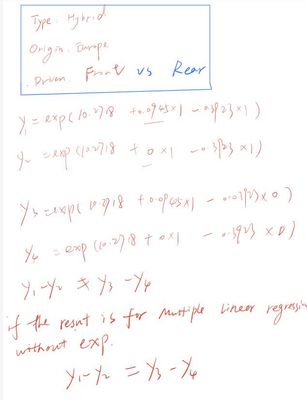 Type: Hybrid
Origin: Europe
Driven: Front vs Rear
y₁ = exp(10.2718 + 0.0945×1 - 0.3923×1)
y₂ = exp(10.2718 + 0×1 - 0.3923×1)
y₃ = exp( 10.2718 + 0.0945×1 - 0.3923×0)
y₄ = exp(10.2718 + 0×1 - 0.3923×0)
y₁-y₂ ≠ y₃-y₄
if the result is for multiple linear regression
without exp.
y₁-y₂ = y₃-y₄